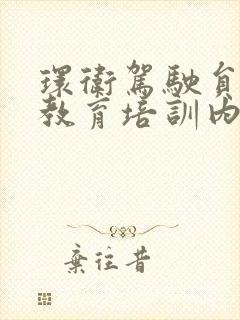 環衛駕駛員
教育培訓內
棄往昔